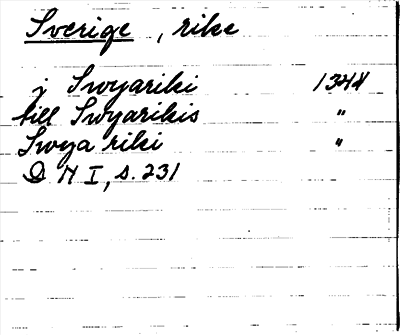 Sverige, rike
j Swyariki 1344
till Swyarikis "
Swya riki "
D N I, s. 231